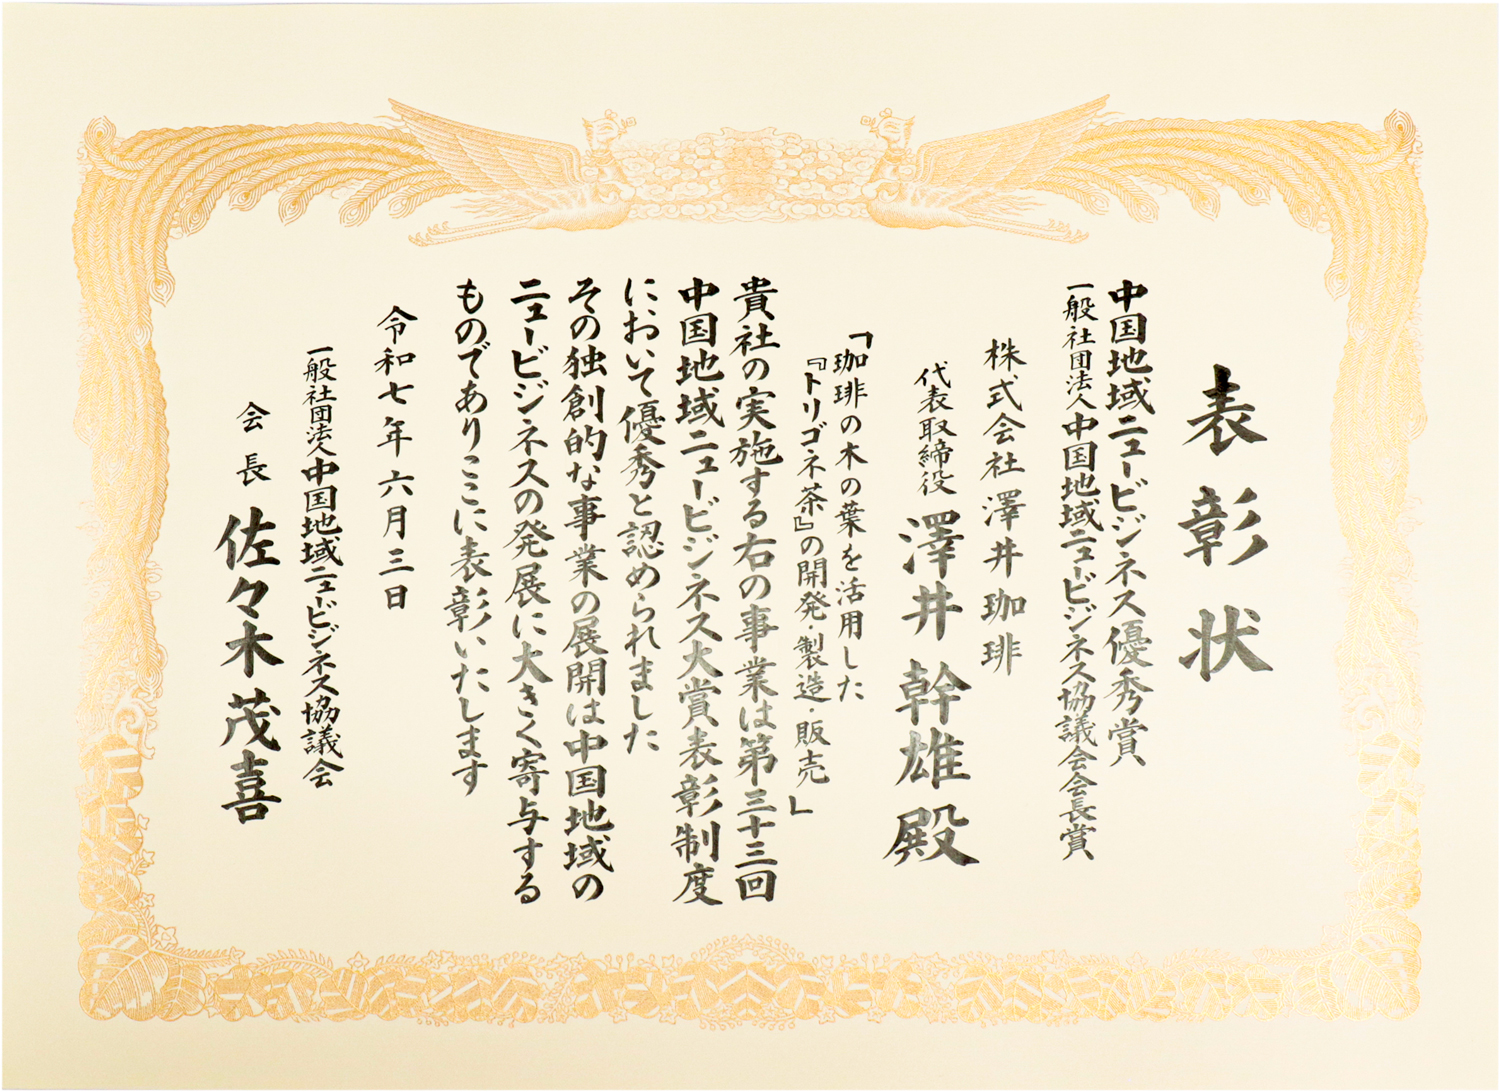 表彰状
中国地域ニュービジネス優秀賞
一般社団法人中国地域ニュービジネス協議会会長賞
株式会社 澤井珈琲
代表取締役 澤井 幹雄 殿
「珈琲の木の葉を活用した
『トリゴネ茶』の開発・製造・販売」
貴社の実施する右の事業は第三十三回
中国地域ニュービジネス大賞表彰制度
において優秀と認められました
その独創的な事業の展開は中国地域の
ニュービジネスの発展に大きく寄与する
ものでありここに表彰いたします
令和七年六月三日
一般社団法人中国地域ニュービジネス協議会
会長 佐々木 茂喜